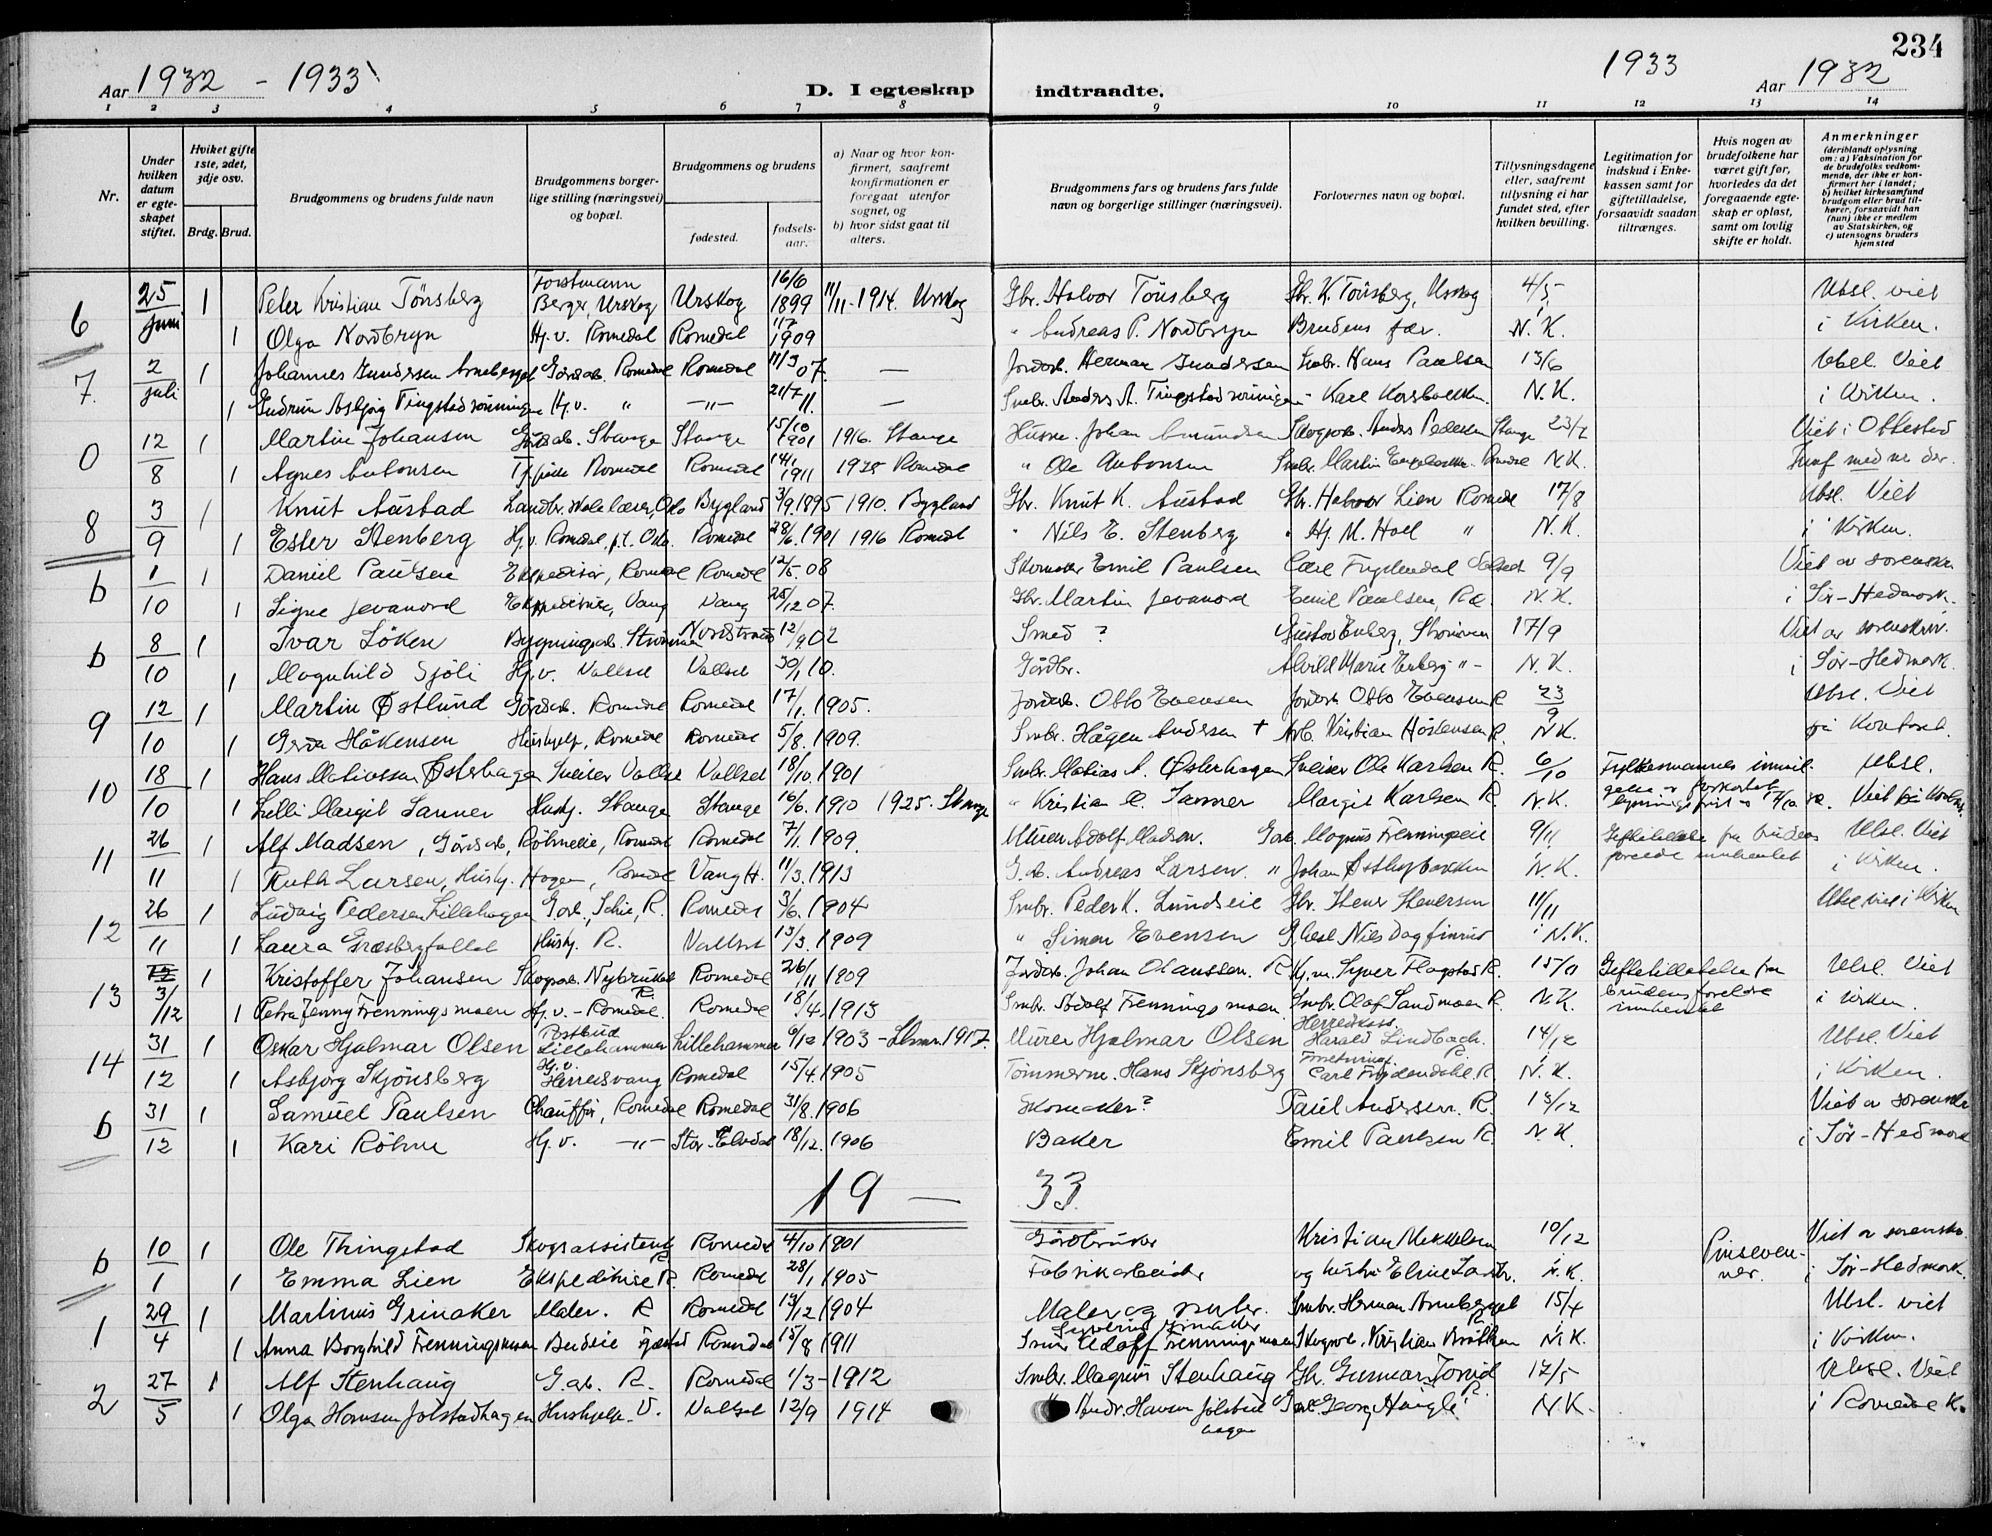 234
Aar 1932 - 1933
D. I egteskap indtraadte.
1933
Aar 1932
1 2 3 4 5 6 7 8 9 10 11 12 13 14
Nr.
Under hvilken datum er egteskapet stiftet.
Hvilket gifte 1ste, 2det, 3dje osv.
Brdg. Brud.
Brudgommens og brudens fulde navn
Brudgommens borgerlige stilling (næringsvei) og bopæl.
Brudgommens og brudens
fødested.
fødselsaar.
a) Naar og hvor konfirmert, saafremt konfirmationen er foregaat utenfor sognet, og
b) hvor sidst gaat til alters.
Brudgommens fars og brudens fars fulde navn og borgerlige stillinger (næringsvei).
Forlovernes navn og bopæl.
Tillysningsdagene eller, saafremt tillysning ei har fundet sted, efter hvilken bevilling.
Legitimation for indskud i Enkekassen samt for giftetilladelse, forsaavidt saadan tiltrænges.
Hvis nogen av brudefolkene har været gift før, hvorledes da det foregaaende egteskap er opløst, samt om lovlig skifte er holdt.
Anmerkninger (deriblandt oplysning om: a) Vaksination for de brudefolks vedkommende, der ikke er konfirmert her i landet; b) hvilket kirkesamfund brudgom eller brud tilhører, forsaavidt han (hun) ikke er medlem av Statskirken, og c) utensogns bruders hjemsted
6 25/juni 1 Peter Kristian Tönsberg Forstmann Berger, Urskog Urskog 16/6 1899 11/11-1914. Urskog Gbr. Halvor Tönsberg Gbr. K. Tönsberg, Urskog 4/5 Ubsl. viet
1 Olga Nordbryn Hj.v. Romedal Romedal 1909 " Andreas P. Nordbryn Brudens far. N.K. i Kirken.
7. 2/juli 1 Johannes Gundersen Gårdsarb. Romedal Romedal 11/3 07. — Jordarb. Herman Gundersen Smbr. Hans Paulsen 13/6 Ubsl. Viet
1 Gudrun Asbjörg Hj.v. " —"— 21/7 11. — Smbr. Anders A. Karl Korsbakken. N.K. i Kirken.
0 12/8 1 Martin Johansen Gårdsarb. Stange Stange 15/10 1901 1916. Stange Husm. Johan Amundsen Skogsarb. Anders Pedersen Stange 23/7 Viet i Ottestad
1 Agnes Antonsen Romedal Romedal 14/1 1911 1925 Romedal " Ole Antonsen Smbr. Martin Romedal N.K.
8 3/9 1 Knut Austad Landbr. skolelærer, Oslo Bygland 3/9.1895 1910. Bygland Gbr. Knut K. Austad Gbr. Halvor Lien Romedal 17/8 Ubsl. Viet
1 Ester Stenberg Hj.v. Romedal, p.t. Oslo. Romedal 28/6.1901 1916 Romedal " Nils E. Stenberg " Hj. M. Hoel " N.K. i Kirken.
b 1/10 1 Daniel Paulsen Ekspeditör, Romedal Romedal 12/5.08 Skomaker Emil Paulsen Carl Frydendal 9/9 Viet av sorenskr.
1 Signe Jevanord Vang Vang 25/12 07. Gbr. Martin Jevanord Emil Paulsen, N.K. i Sør-Hedmark.
b 8/10 1 Ivar Löken Bygningsarb. Strömmen Nordstrand 12/9 02 Smed ? Gustav Enberg, Strömmen 17/9 Viet av sorenskriv.
1 Magnhild Sjöli Hj.v. Vallset Vallset 30/1 10. Gårdbr. Alvild Marie Enberg "- N.K. i Sør-Hedmark.
9 12/10 1 Martin Østlund Gårdsarb. Romedal Romedal 17/1.1905. Jordarb. Otto Evensen Jordarb. Otto Evensen R 23/9 Ubsl. Viet
1 Gerda Håkensen Hushjelp, Romedal Romedal 5/8.1909. Smbr. Hågen Andersen + Arb. Kristian R. N.K. på Kontoret.
10 18/10 1 Hans Mathiassen Østerhagen Sveiser Vallset Vallset 18/10.1901 Smbr. Matias A. Østerhagen Sveiser Ole Karlsen R. 6/10 Fylkesmannens innvilgelse Ubsl.
1 Lilli Margit Sanner Hushj. Stange Stange 16/6.1910 1925. Stange " Kristian Sanner Margit Karlsen R. N.K. Viet på Kontor.
11 26/11 1 Alf Madsen, Gårdsarb, Romedal Romedal 7/1.1909. Murer Adolf Madsen. Garb. Magnus Frenningseie 9/11 Giftetillatelse fra brudens forelde innhentet Ubsl. Viet
1 Ruth Larsen, Hushj. Hagen, Romedal Vang H. 11/3.1913 G.arb. Andreas Larsen. " Johan N.K. i Kirken.
12 26/11 1 Ludvig Pedersen Lillehagen Garb., R. Romedal 3/6.1904 Smbr. Peder K. Lundseie Gbr. Stener Stenersen 11/11 Ubsl. viet i Kirken
1 Laura Græsbergfallet Hushj. R. Vallset 13/3.1909 " Simen Evensen Nils Dagfinrud N.K.
13 3/12 1 Kristoffer Johansen Skogsarb. R. Romedal 26/11 1909 Jordarb. Johan Olaussen. R. Syver Flagstad R. 15/11 Giftetillatelse fra brudens foreldre innhentet Ubsl. Viet
1 Petra Jenny Frenningsmoen Hj.v. - Romedal. Romedal 18/4.1913 Smbr. Adolf Frenningsmoen Smbr. Olaf Sandmoen R. N.K. i Kirken.
14 31/12 1 Oskar Hjalmar Olsen Postbud Lillehammer Lillehammer 6/12 1903 - Lhmr. 1917. Murer Hjalmar Olsen Herredskass. Harald Lindbach. R. 14/12 Ubsl. Viet
1 Asbjörg Skjönsberg Hj.v. Herredsvang Romedal 15/4.1905 Tömmerm. Hans Skjönsberg Carl Frydendahl. R N.K. i Kirken.
b 31/12 1 Samuel Paulsen Chauffør, Romedal Romedal 31/8.1906 Skomaker? Paul Andersen. R. 13/12 Viet av sorenskr.
1 Kari Röhne Hj.v. —"— Stor-Elvdal 18/12.1906 Baker Emil Paulsen R. N.K. i Sør-Hedmark
19 — 33
b 10/1 1 Ole Thingstad Skogsassistent R. Romedal 4/10 1901 Gårdbruker Kristian Mikkelsen 10/12 Pinsevenner. Viet av sorenskr.
1 Emma Lien Ekspeditrise R. Romedal 28/1 1905 Fabrikarbeider og hustru N.K. i Sør-Hedmark.
1 29/4 1 Martinus Grinaker Maler. R Romedal 13/12 1904 Maler og smbr. Grinaker Smbr. Herman R. 15/4 Ubsl. viet
1 Anna Borghild Frenningsmoen Romedal 15/8 1911 Smbr. Adolf Frenningsmoen Skogsarb. Kristian N.K. i Kirken.
2 27/5 1 Alf Stenhaug G.arb. R. Romedal 1/3-1912 Smbr. Magnus Stenhaug Gbr. Gunnar R. 12/5 Ubsl. Viet
1 Olga Hansen Jölstadhagen Hushjelp V. Vallset 12/9 1914 " Andr. Hansen Jölstadhagen Georg N.K. i Romedal K.